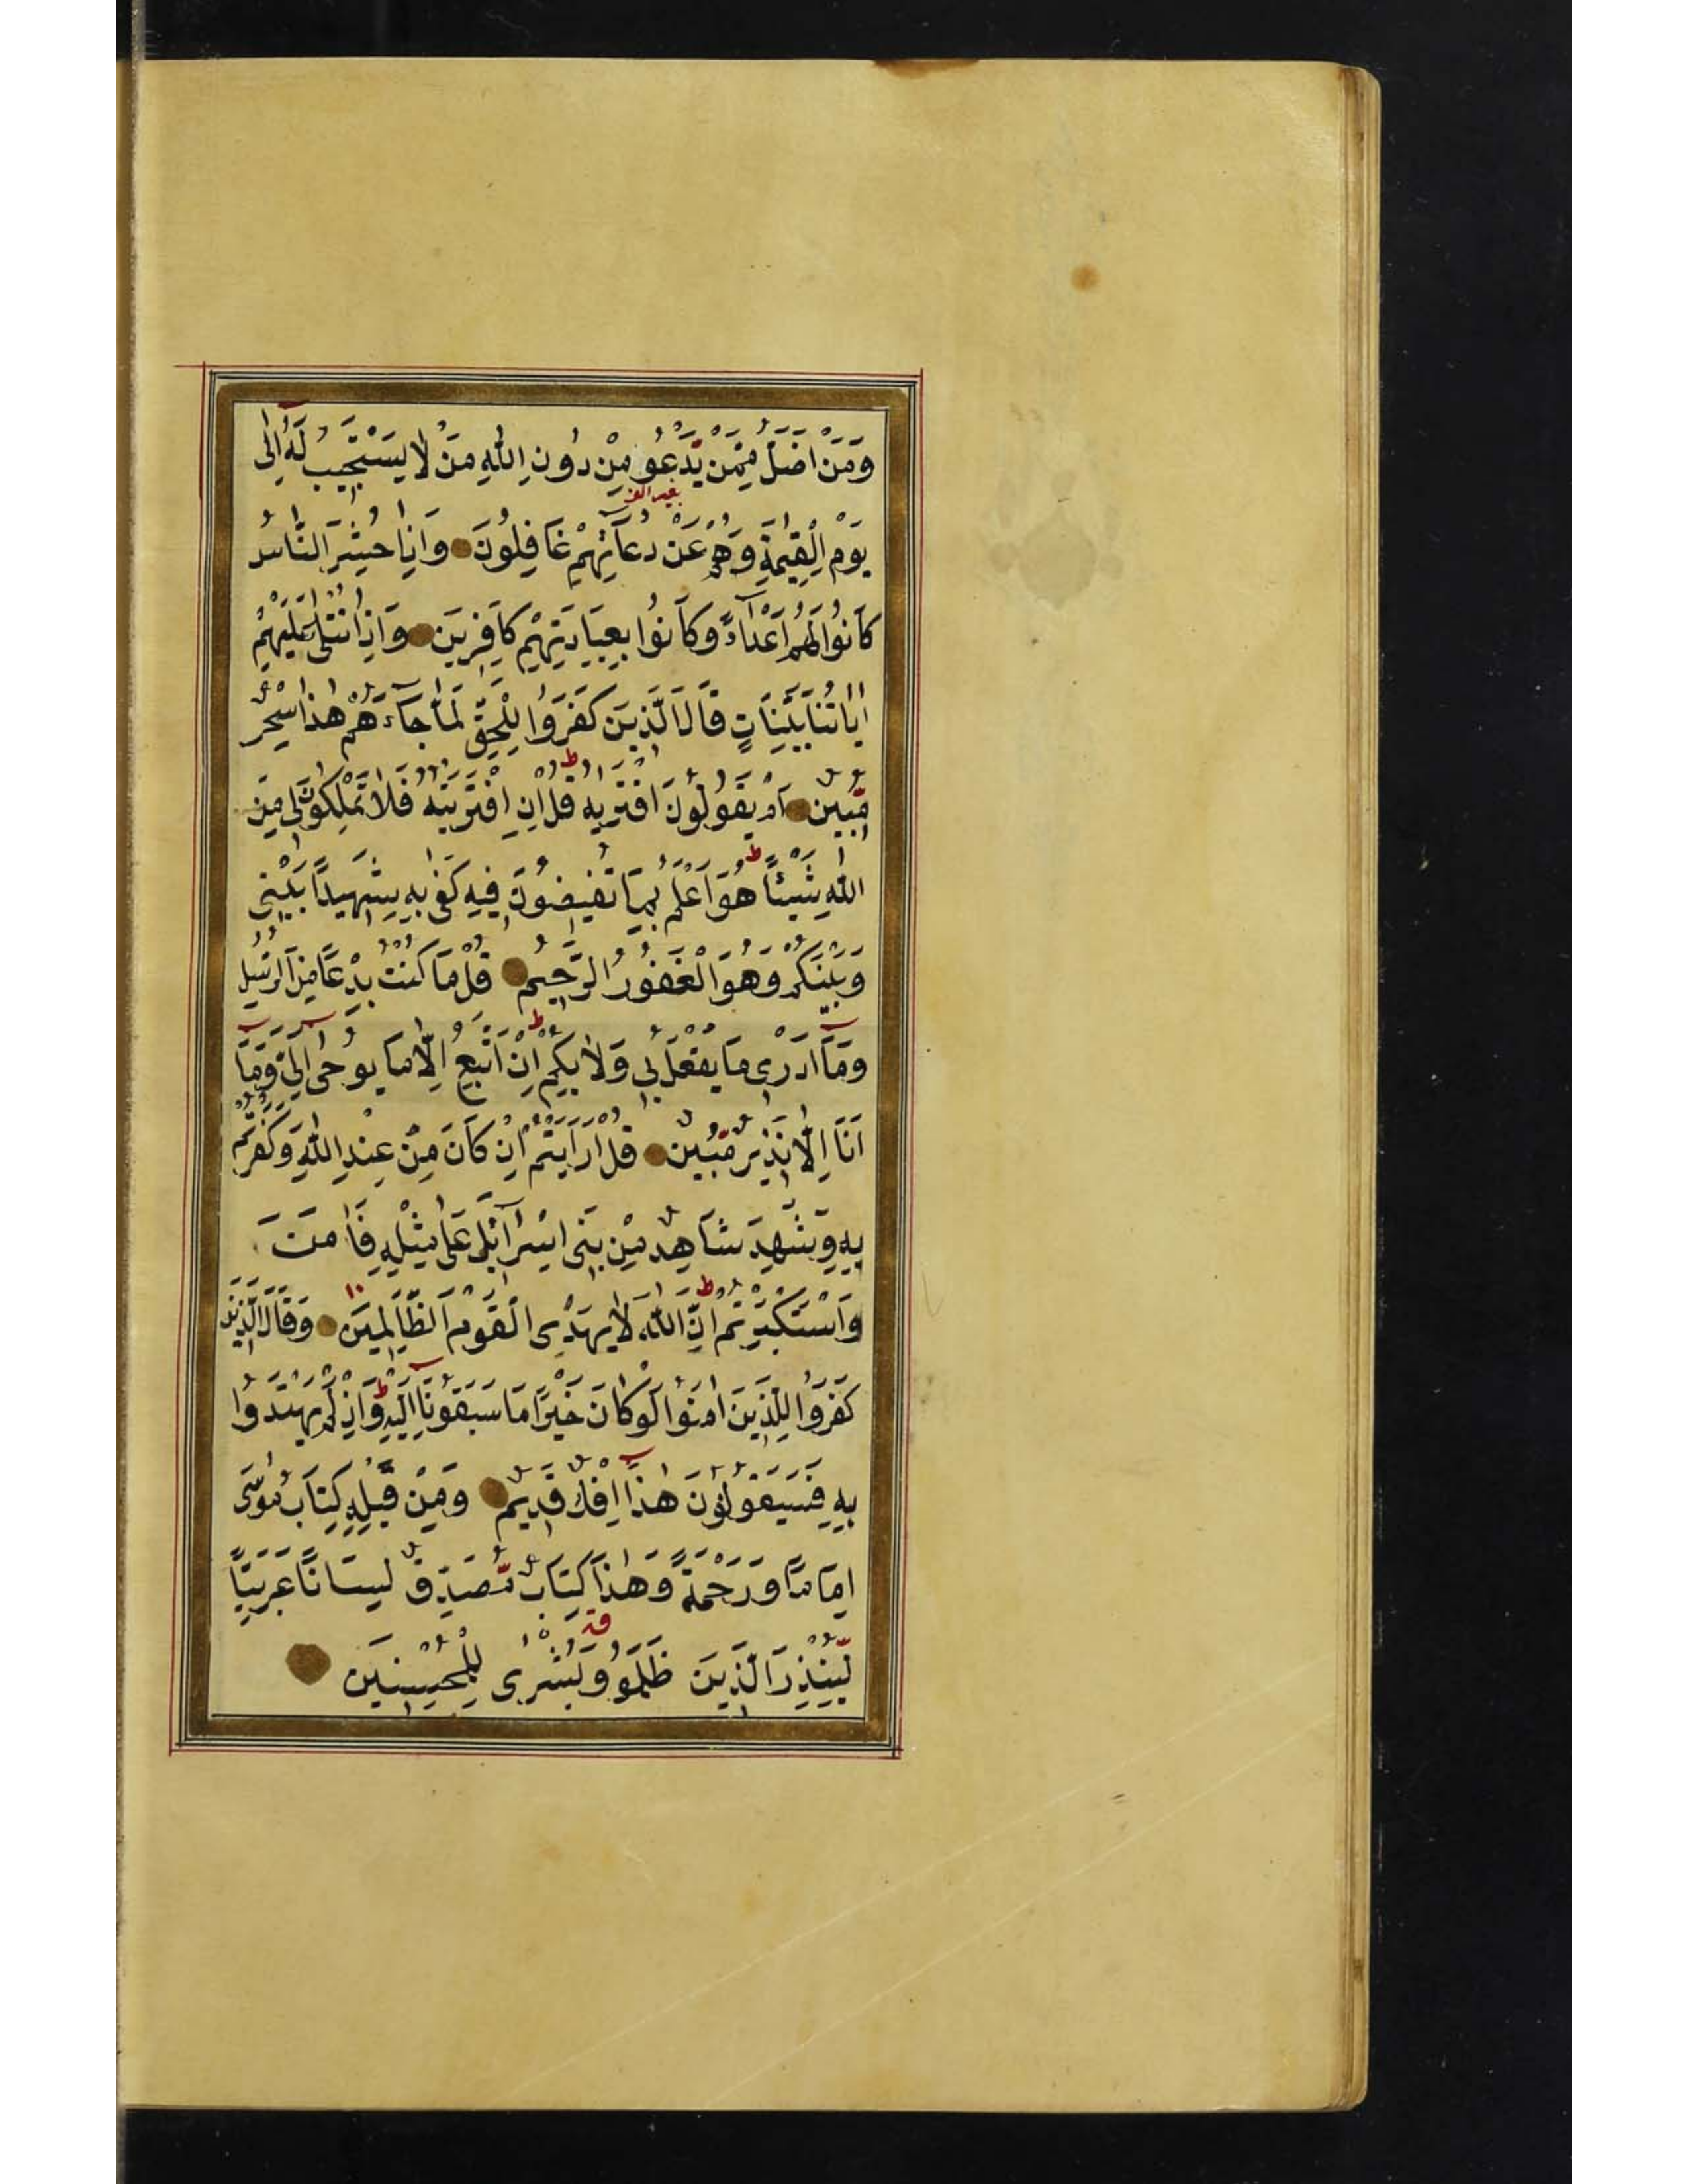 وَمَنْ اَضَلُّ مِمَّنْ يَّدْعُو مِنْ دُونِ اللّٰهِ مَنْ لَا يَسْتَجِيبُ لَهُ اِلٰى
بغير الف
يَوْمِ الْقِيٰمَةِ وَهُمْ عَنْ دُعَآئِهِمْ غَافِلُونَ وَاِذَا حُشِرَ النَّاسُ
كَانُوا لَهُمْ اَعْدَآءً وَكَانُوا بِعِبَادَتِهِمْ كَافِرِينَ وَاِذَا تُتْلٰى عَلَيْهِمْ
اٰيَاتُنَا بَيِّنَاتٍ قَالَ الَّذِينَ كَفَرُوا لِلْحَقِّ لَمَّا جَآءَهُمْ هٰذَا سِحْرٌ
مُّبِينٌ اَمْ يَقُولُونَ افْتَرٰيهُ ط قُلْ اِنِ افْتَرَيْتُهُ فَلَا تَمْلِكُونَ لِى مِنَ
اللّٰهِ شَيْئًا ط هُوَ اَعْلَمُ بِمَا تُفِيضُونَ فِيهِ كَفٰى بِهِ شَهِيدًا بَيْنِى
وَبَيْنَكُمْ وَهُوَ الْغَفُورُ الرَّحِيمُ قُلْ مَا كُنْتُ بِدْعًا مِنَ الرُّسُلِ
وَمَآ اَدْرِى مَا يُفْعَلُ بِى وَلَا بِكُمْ ط اِنْ اَتَّبِعُ اِلَّا مَا يُوحٰٓى اِلَىَّ وَمَآ
اَنَا اِلَّا نَذِيرٌ مُّبِينٌ قُلْ اَرَاَيْتُمْ اِنْ كَانَ مِنْ عِنْدِ اللّٰهِ وَكَفَرْتُمْ
بِهِ وَشَهِدَ شَاهِدٌ مِنْ بَنِى اِسْرَآئِلَ عَلٰى مِثْلِهِ فَاٰمَنَ
وَاسْتَكْبَرْتُمْ ط اِنَّ اللّٰهَ لَا يَهْدِى الْقَوْمَ الظَّالِمِينَ ١٠ وَقَالَ الَّذِينَ
كَفَرُوا لِلَّذِينَ اٰمَنُوا لَوْ كَانَ خَيْرًا مَا سَبَقُونَآ اِلَيْهِ ط وَاِذْ لَمْ يَهْتَدُوا
بِهِ فَسَيَقُولُونَ هٰذَآ اِفْكٌ قَدِيمٌ وَمِنْ قَبْلِهِ كِتَابُ مُوسٰى
اِمَامًا وَرَحْمَةً وَهٰذَا كِتَابٌ مُّصَدِّقٌ لِسَانًا عَرَبِيًّا
لِّيُنْذِرَ الَّذِينَ ظَلَمُوا وَبُشْرٰى لِلْمُحْسِنِينَ